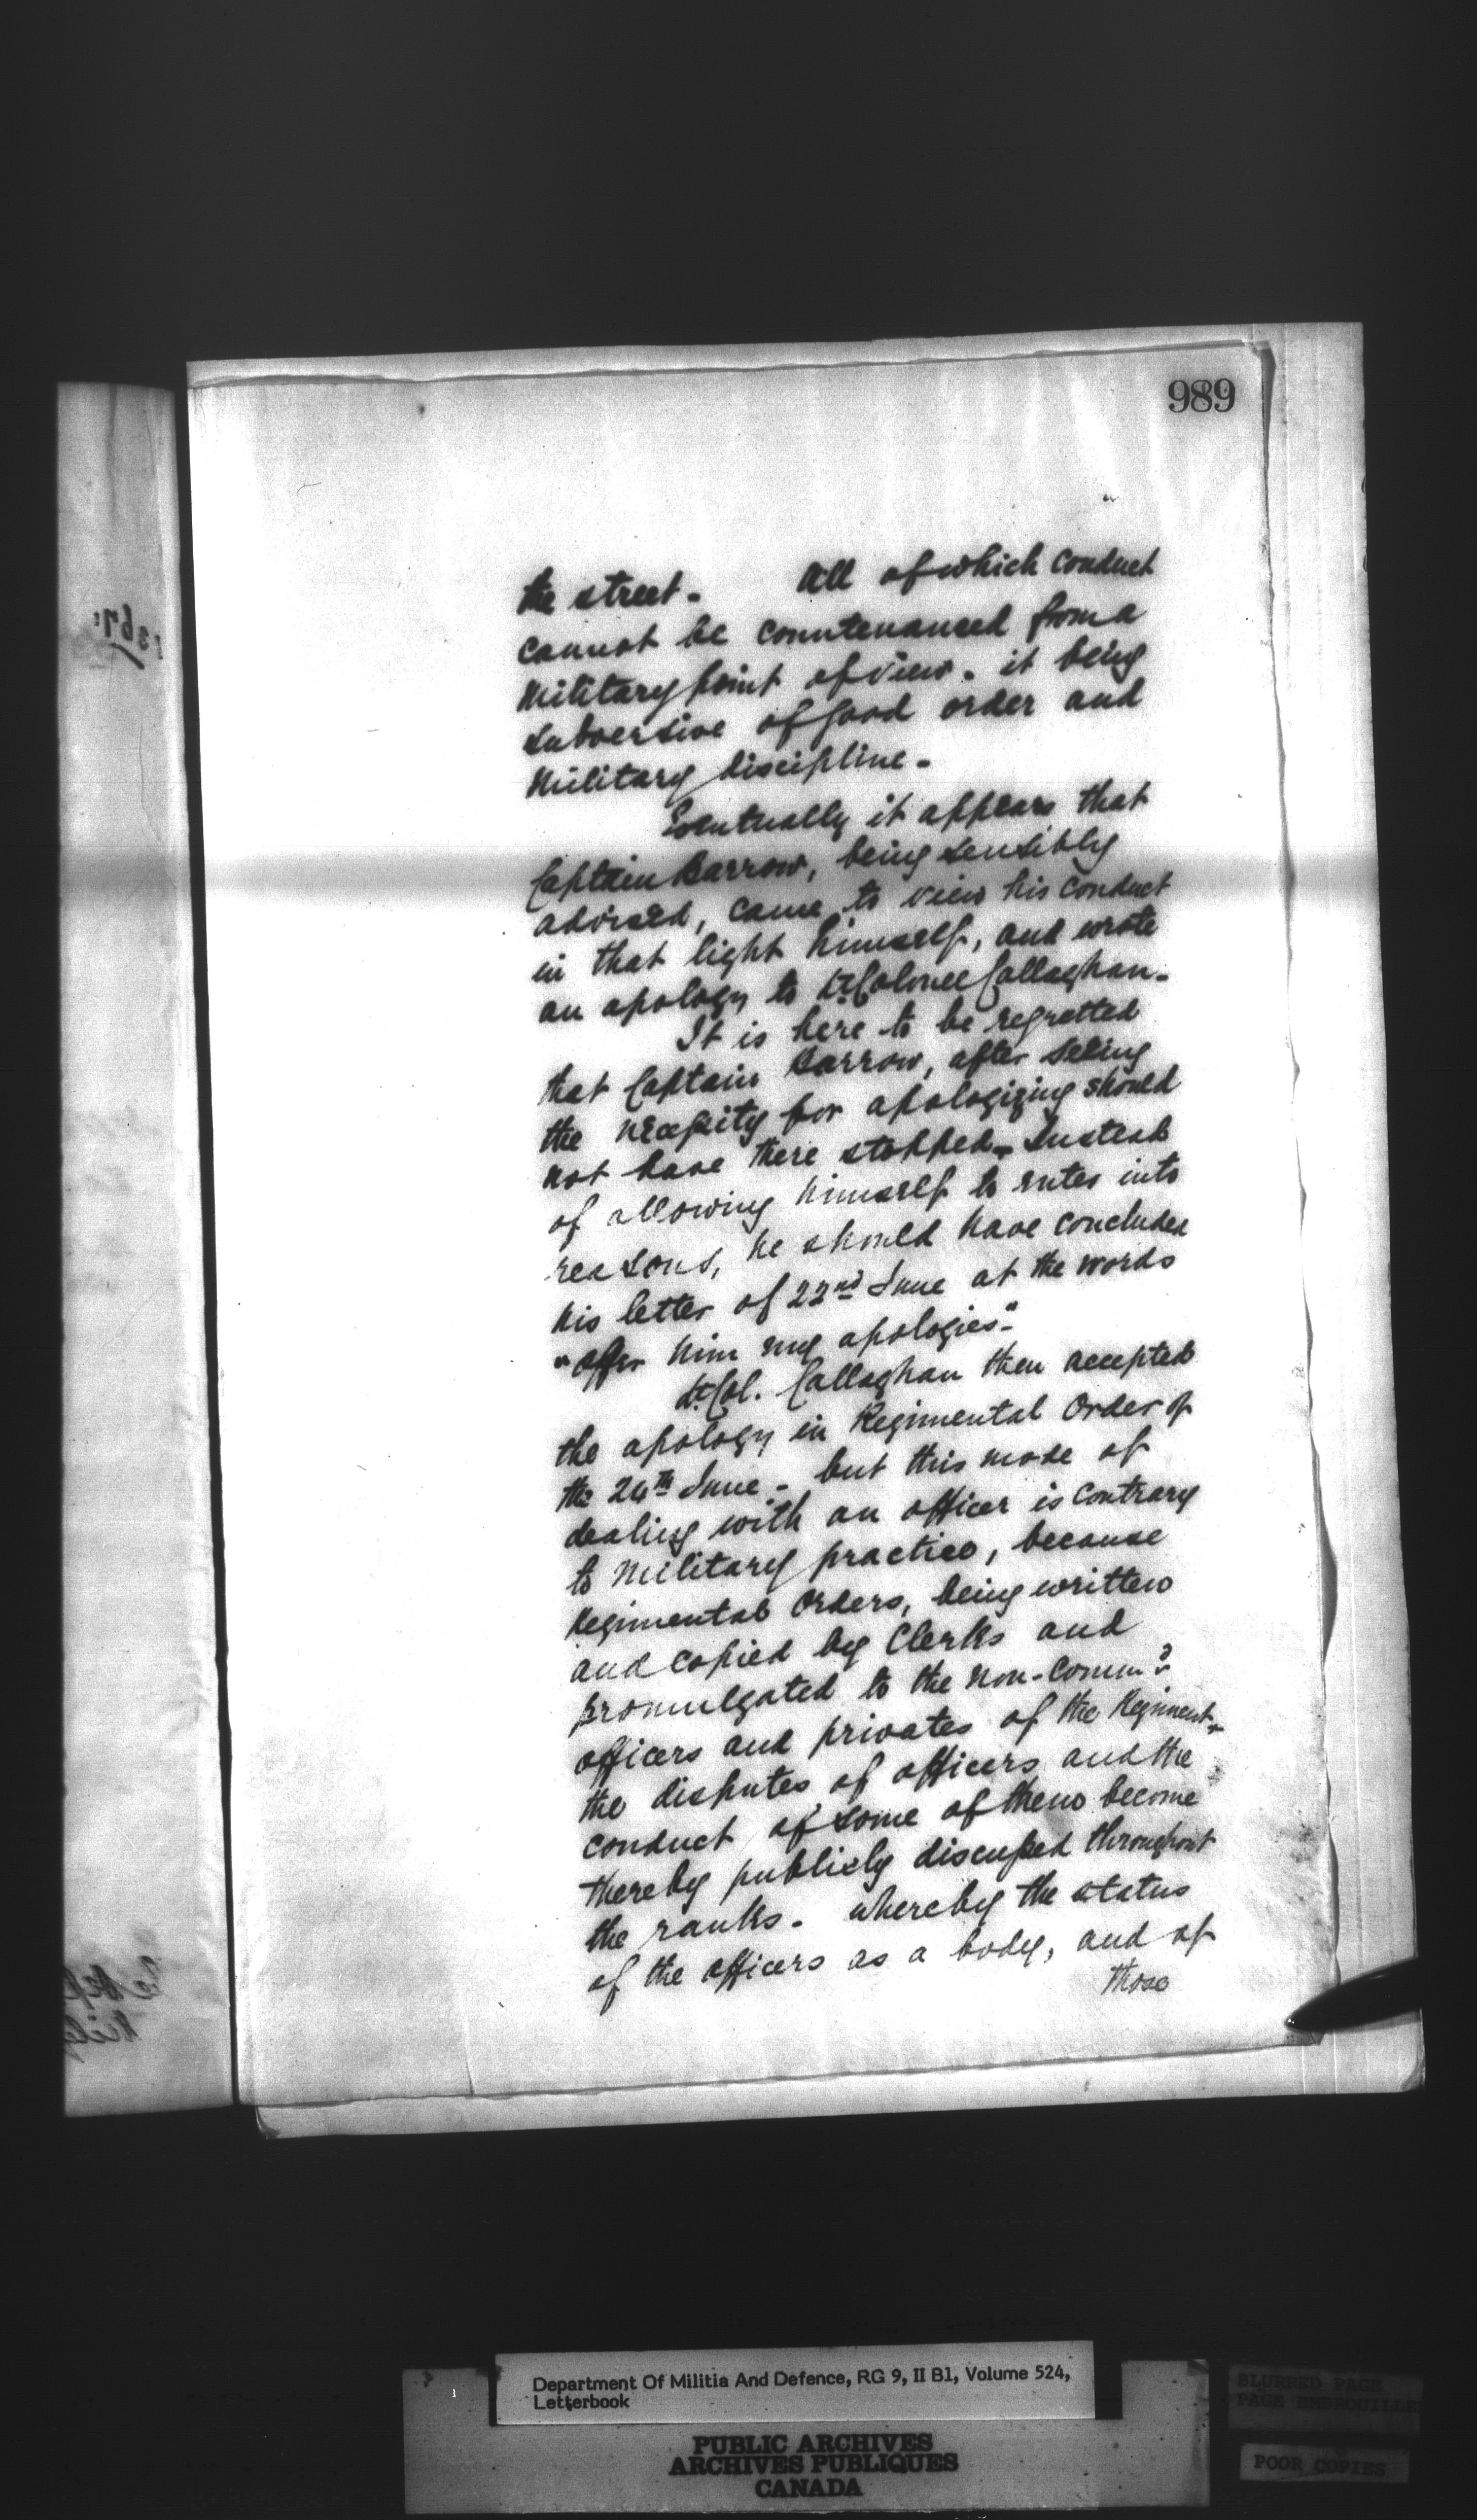 989
the street - All of which conduct
cannot be countenanced from a
Military point of view - it being
subversive of good order and
Military discipline -
Eventually it appears that
Captain Barrow, being sensibly
advised, came to view his conduct
in that light himself, and wrote
an apology to Lt Colonel Callaghan -
It is here to be regretted
that Captain Barrow, after seeing
the necessity for apologizing should
not have there stopped - Instead
of allowing himself to enter into
reasons, he should have concluded
his letter of 22nd June at the words
"offer him my apologies" -
Lt Col. Callaghan then accepted
the apology in Regimental Order of
the 24th June - but this mode of
dealing with an officer is contrary
to Military practice, because
Regimental Orders, being written
and copied by Clerks and
promulgated to the Non-Comm'd
officers and privates of the Regiment -
the disputes of officers and the
conduct of some of them become
thereby publicly discussed throughout
the ranks - whereby the status
of the officers as a body, and of
those
Department Of Militia And Defence, RG 9, II B1, Volume 524,
Letterbook
PUBLIC ARCHIVES
ARCHIVES PUBLIQUES
CANADA
BLURRED PAGE
PAGE EMBROUILLE
POOR COPIES